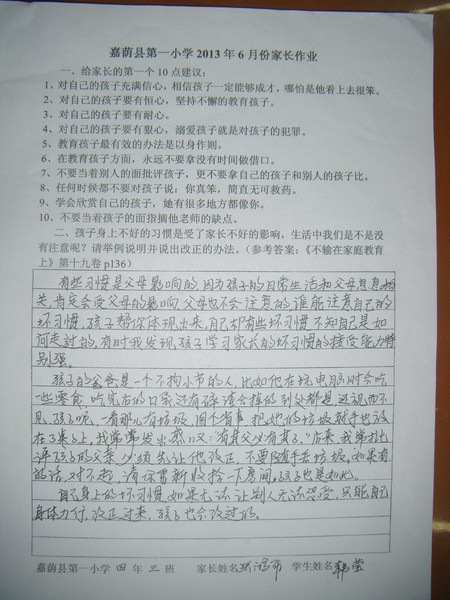 嘉荫县第一小学 2013 年 6 月份家长作业
一、给家长的第一个 10 点建议：
1、对自己的孩子充满信心，相信孩子一定能够成才，哪怕是他看上去很笨。
2、对自己的孩子要有恒心，坚持不懈的教育孩子。
3、对自己的孩子要有耐心。
4、对自己的孩子要有狠心，溺爱孩子就是对孩子的犯罪。
5、教育孩子最有效的办法是以身作则。
6、在教育孩子方面，永远不要拿没有时间做借口。
7、不要当着别人的面批评孩子，更不要拿自己的孩子和别人的孩子比。
8、任何时候都不要对孩子说：你真笨，简直无可救药。
9、学会欣赏自己的孩子，她有很多地方都像你。
10、不要当着孩子的面指摘他老师的缺点。
二、孩子身上不好的习惯是受了家长不好的影响，生活中我们是不是没
有注意呢？请举例说明并说出改正的办法。（参考答案：《不输在家庭教育
上》第十九卷 p136）
有些习惯是父母影响的，因为孩子的日常生活和父母息息相
关，肯定会受父母的影响，父母也不会注意的，谁能注意自己的
坏习惯，孩子帮你体现出来，自己却有些坏习惯不知自己是如
何走过的，有时我发现，孩子学习家长的坏习惯的接受能力特
别强。
孩子的爸爸是一个不拘小节的人，比如他在玩电脑时会吃
一些零食，吃完后的口袋还有碎渣会掉的到处都是，还视而不
见，孩子呢，一看那儿有垃圾，图个省事，把她的垃圾就手也放
在了桌上，我常常发出感叹：有其父必有其子。后来，我常批
评孩子的父亲，必须先让他改正，不要随手丢垃圾，如果有
的话，对不起，请你重新收拾一下房间，孩子也是如此。
自己身上的坏习惯，如果无法让别人无法忍受，只能自己
身体力行，改正过来，孩子也会改过的。
嘉荫县第一小学 四 年 三 班 家长姓名 学生姓名 韩莹